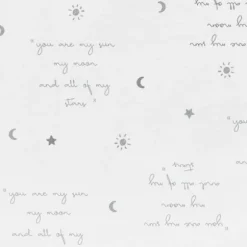 "you are my sun
my moon
and all of my
stars"
my sun
my moon
all of my
"you
"you are my sun
my moon
and all of my
you are my sun
my moon
and all of my
stars"